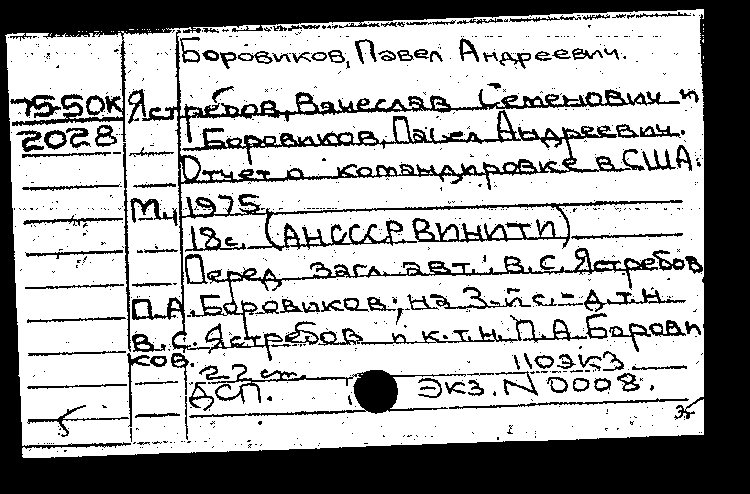 Боровиков, Павел Андреевич.
75-50К Ястребов, Вячеслав Семенович и
2028 Боровиков, Павел Андреевич.
Отчет о командировке в США.
М., 1975.
18с. (АН СССР. ВИНИТИ)
Перед загл. авт.: В.С. Ястребов,
П.А. Боровиков; на 3-й с. - д.т.н.
В.С. Ястребов и к.т.н. П.А. Борови
ков.
22 см. 110экз.
ДСП. Экз. N 0008.